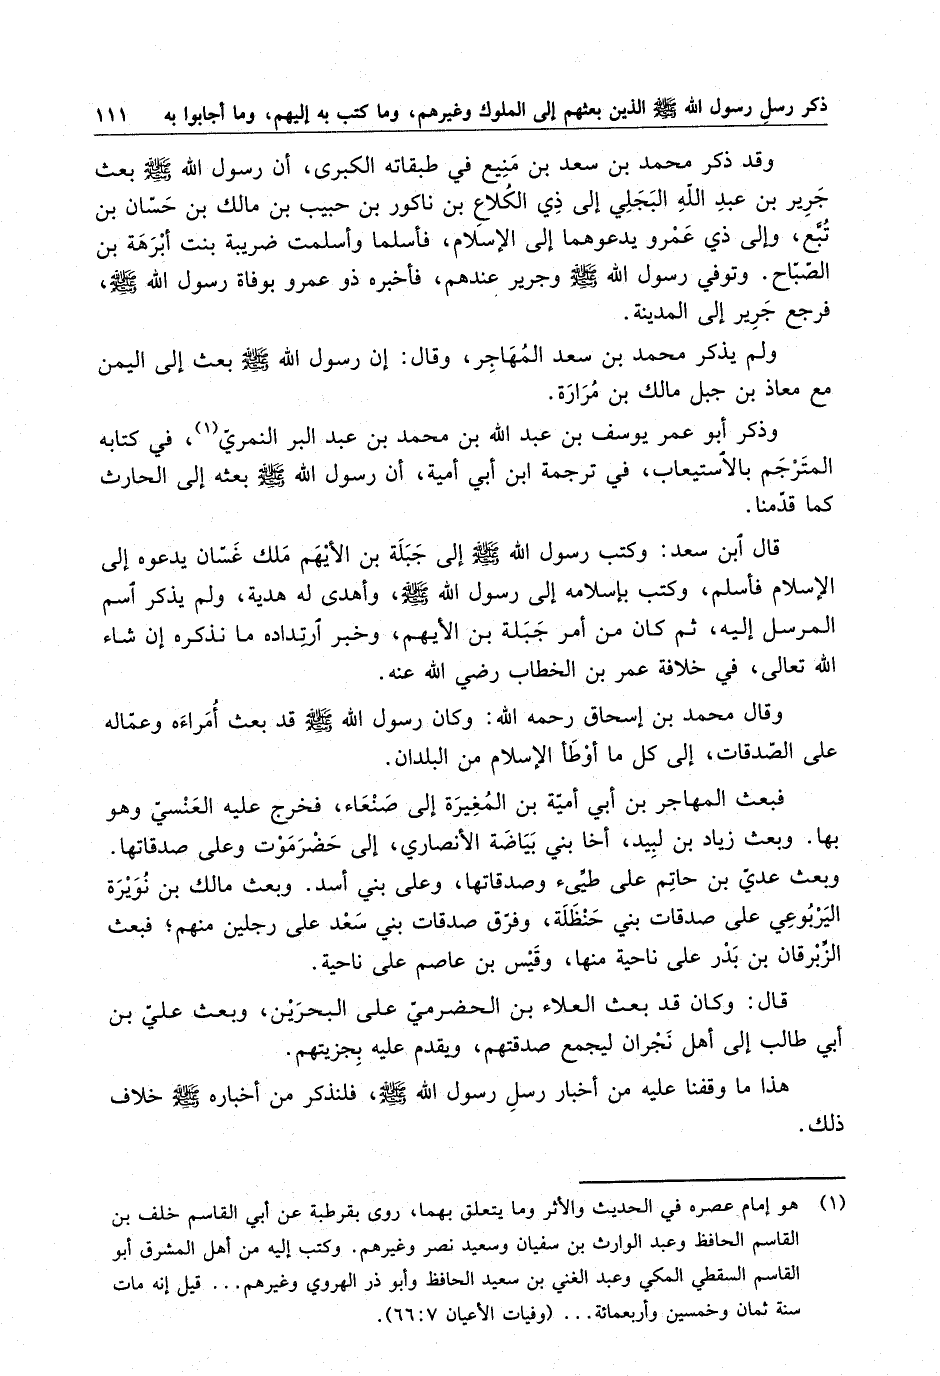 ذكر رسلِ رسول الله ﷺ الذين بعثهم إلى الملوك وغيرهم، وما كتب به إليهم، وما أجابوا به ١١١
وقد ذكر محمد بن سعد بن مَنِيع في طبقاته الكبرى، أن رسول الله ﷺ بعث
جَرِير بن عبدِ اللّهِ البَجَلِي إلى ذِي الكُلاع بن ناكور بن حبيب بن مالك بن حَسّان بن
تُبَّع، وإلى ذي عَمْرو يدعوهما إلى الإسلام، فأسلما وأسلمت ضريبة بنت أبْرَهَة بن
الصّبّاح. وتوفي رسول الله ﷺ وجرير عندهم، فأخبره ذو عمرو بوفاة رسول الله ﷺ،
فرجع جَرِير إلى المدينة.
ولم يذكر محمد بن سعد المُهَاجِر، وقال: إن رسول الله ﷺ بعث إلى اليمن
مع معاذ بن جبل مالك بن مُرَارَة.
وذكر أبو عمر يوسف بن عبد الله بن محمد بن عبد البر النمريّ(١)، في كتابه
المتَرْجَم بالاٌستيعاب، في ترجمة ابن أبي أمية، أن رسول الله ﷺ بعثه إلى الحارث
كما قدّمنا.
قال ٱبن سعد: وكتب رسول الله ﷺ إلى جَبَلَة بن الأيْهَم مَلك غَسّان يدعوه إلى
الإسلام فأسلم، وكتب بإسلامه إلى رسول الله ﷺ، وأهدى له هدية، ولم يذكر ٱسم
المرسل إليه، ثم كان من أمر جَبَلة بن الأيهم، وخبر ٱرتِداده ما نذكره إن شاء
الله تعالى، في خلافة عمر بن الخطاب رضي الله عنه.
وقال محمد بن إسحاق رحمه الله: وكان رسول الله ﷺ قد بعث أُمَراءَه وعمّاله
على الصّدقات، إلى كل ما أوْطَأ الإسلام من البلدان.
فبعث المهاجر بن أبي أميّة بن المُغِيرَة إلى صَنْعَاء، فخرج عليه العَنْسيّ وهو
بها. وبعث زياد بن لبِيد، أخا بني بَيَاضَة الأنصاري، إلى حَضْرَمَوْت وعلى صدقاتها.
وبعث عديّ بن حاتِم على طيِّىء وصدقاتها، وعلى بني أسد. وبعث مالك بن نُوَيْرَة
اليَرْبُوعِي على صدقات بني حَنْظَلَة، وفرّق صدقات بني سَعْد على رجلين منهم؛ فبعث
الزِّبْرقان بن بَدْر على ناحية منها، وقَيْس بن عاصم على ناحية.
قال: وكان قد بعث العلاء بن الحضرميّ على البحرَيْن، وبعث عليّ بن
أبي طالب إلى أهل نَجْران ليجمع صدقتهم، ويقدم عليه بِجزيتهم.
هذا ما وقفنا عليه من أخبار رسلِ رسول الله ﷺ، فلنذكر من أخباره ﷺ خلاف
ذلك.
(١) هو إمام عصره في الحديث والأثر وما يتعلق بهما، روى بقرطبة عن أبي القاسم خلف بن
القاسم الحافظ وعبد الوارث بن سفيان وسعيد نصر وغيرهم. وكتب إليه من أهل المشرق أبو
القاسم السقطي المكي وعبد الغني بن سعيد الحافظ وأبو ذر الهروي وغيرهم... قيل إنه مات
سنة ثمان وخمسين وأربعمائة... (وفيات الأعيان ٧:٦٦).